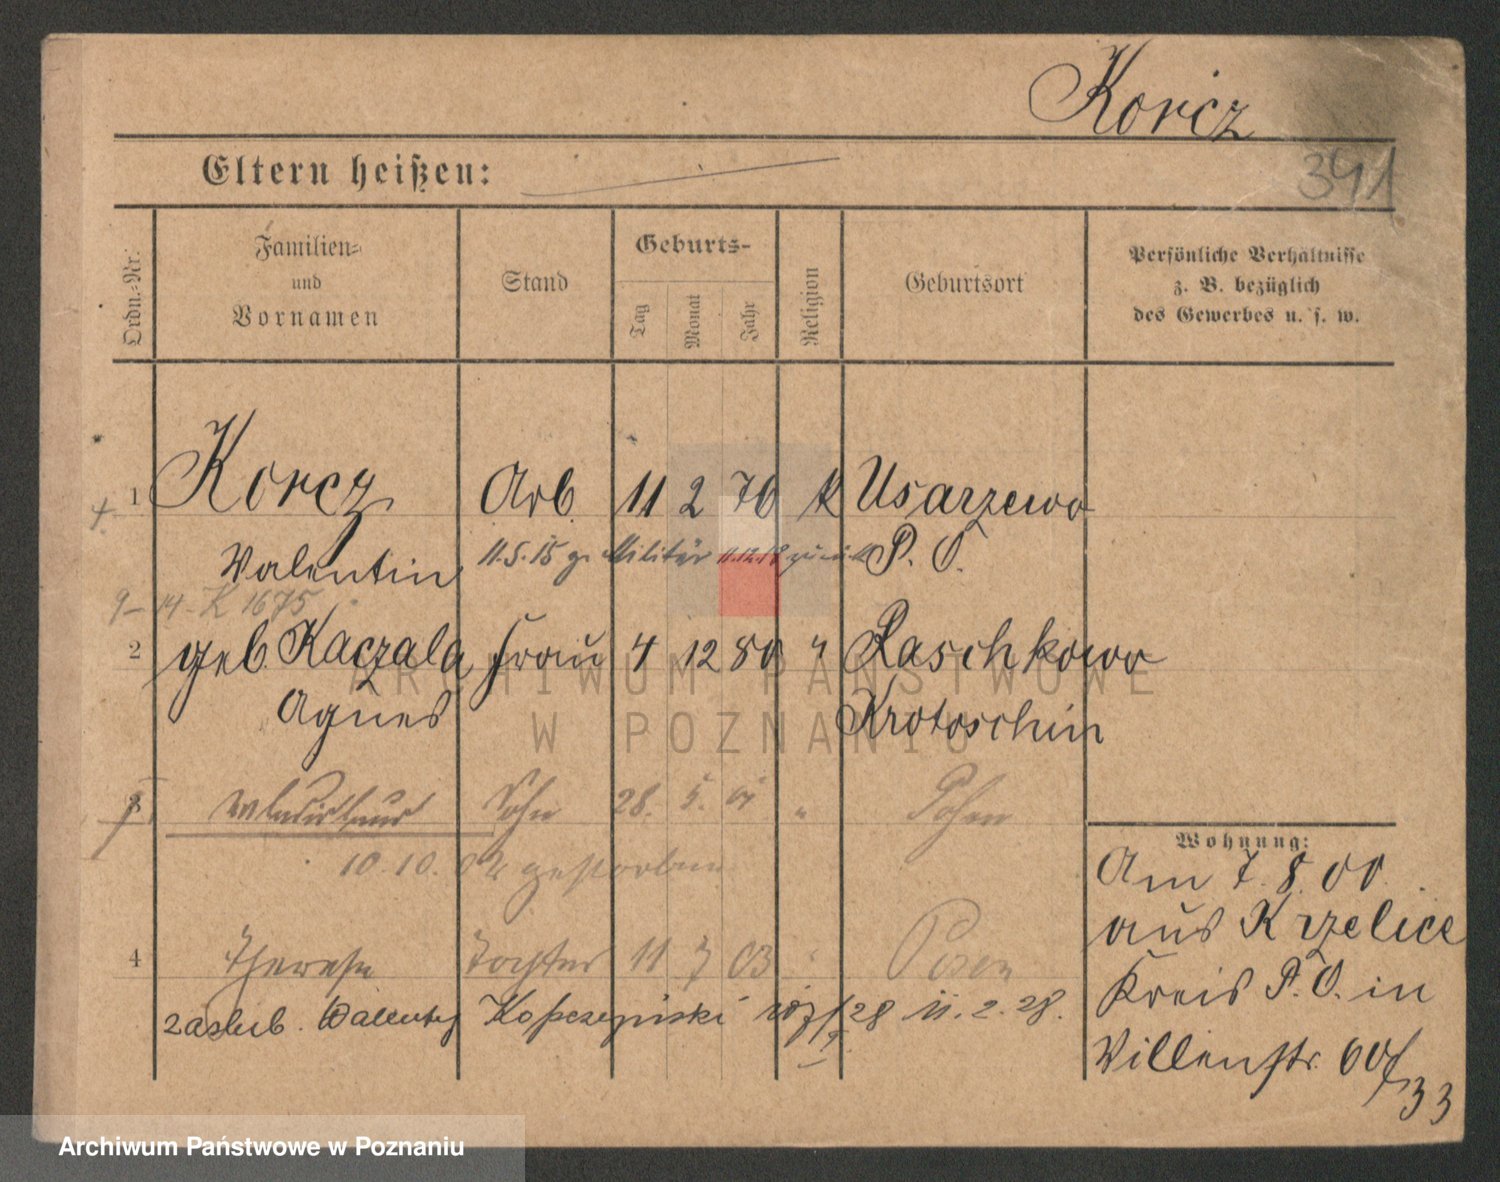 Korcz
Eltern heißen:
391
Ordn.-Nr.
Familien-
und
Vornamen
Stand
Geburts-
Tag
Monat
Jahr
Religion
Geburtsort
Persönliche Verhältnisse
z. B. bezüglich
des Gewerbes u. s. w.
1 Korcz Arb 11 2 76 k Usarzewo
Valentin 11.5.15 z. Militär 11.12.18 zurück P. O.
9-14-K 1675
2 geb. Kaczala Frau 4 12 80 " Raschkowo
Agnes Krotoschin
ARCHIWUM PAŃSTWOWE
W POZNANIU
3 Wladislaus Sohn 28. 5. 01 " Posen
10.10.02 gestorben
4 Therese Tochter 11 7 03 " Posen
zaślub. Walenty Kopczyński 28 11.2.28.
Wohnung:
Am 7.8.00.
aus Krzelice
Kreis P. O. in
Villenstr. 60
33
Archiwum Państwowe w Poznaniu